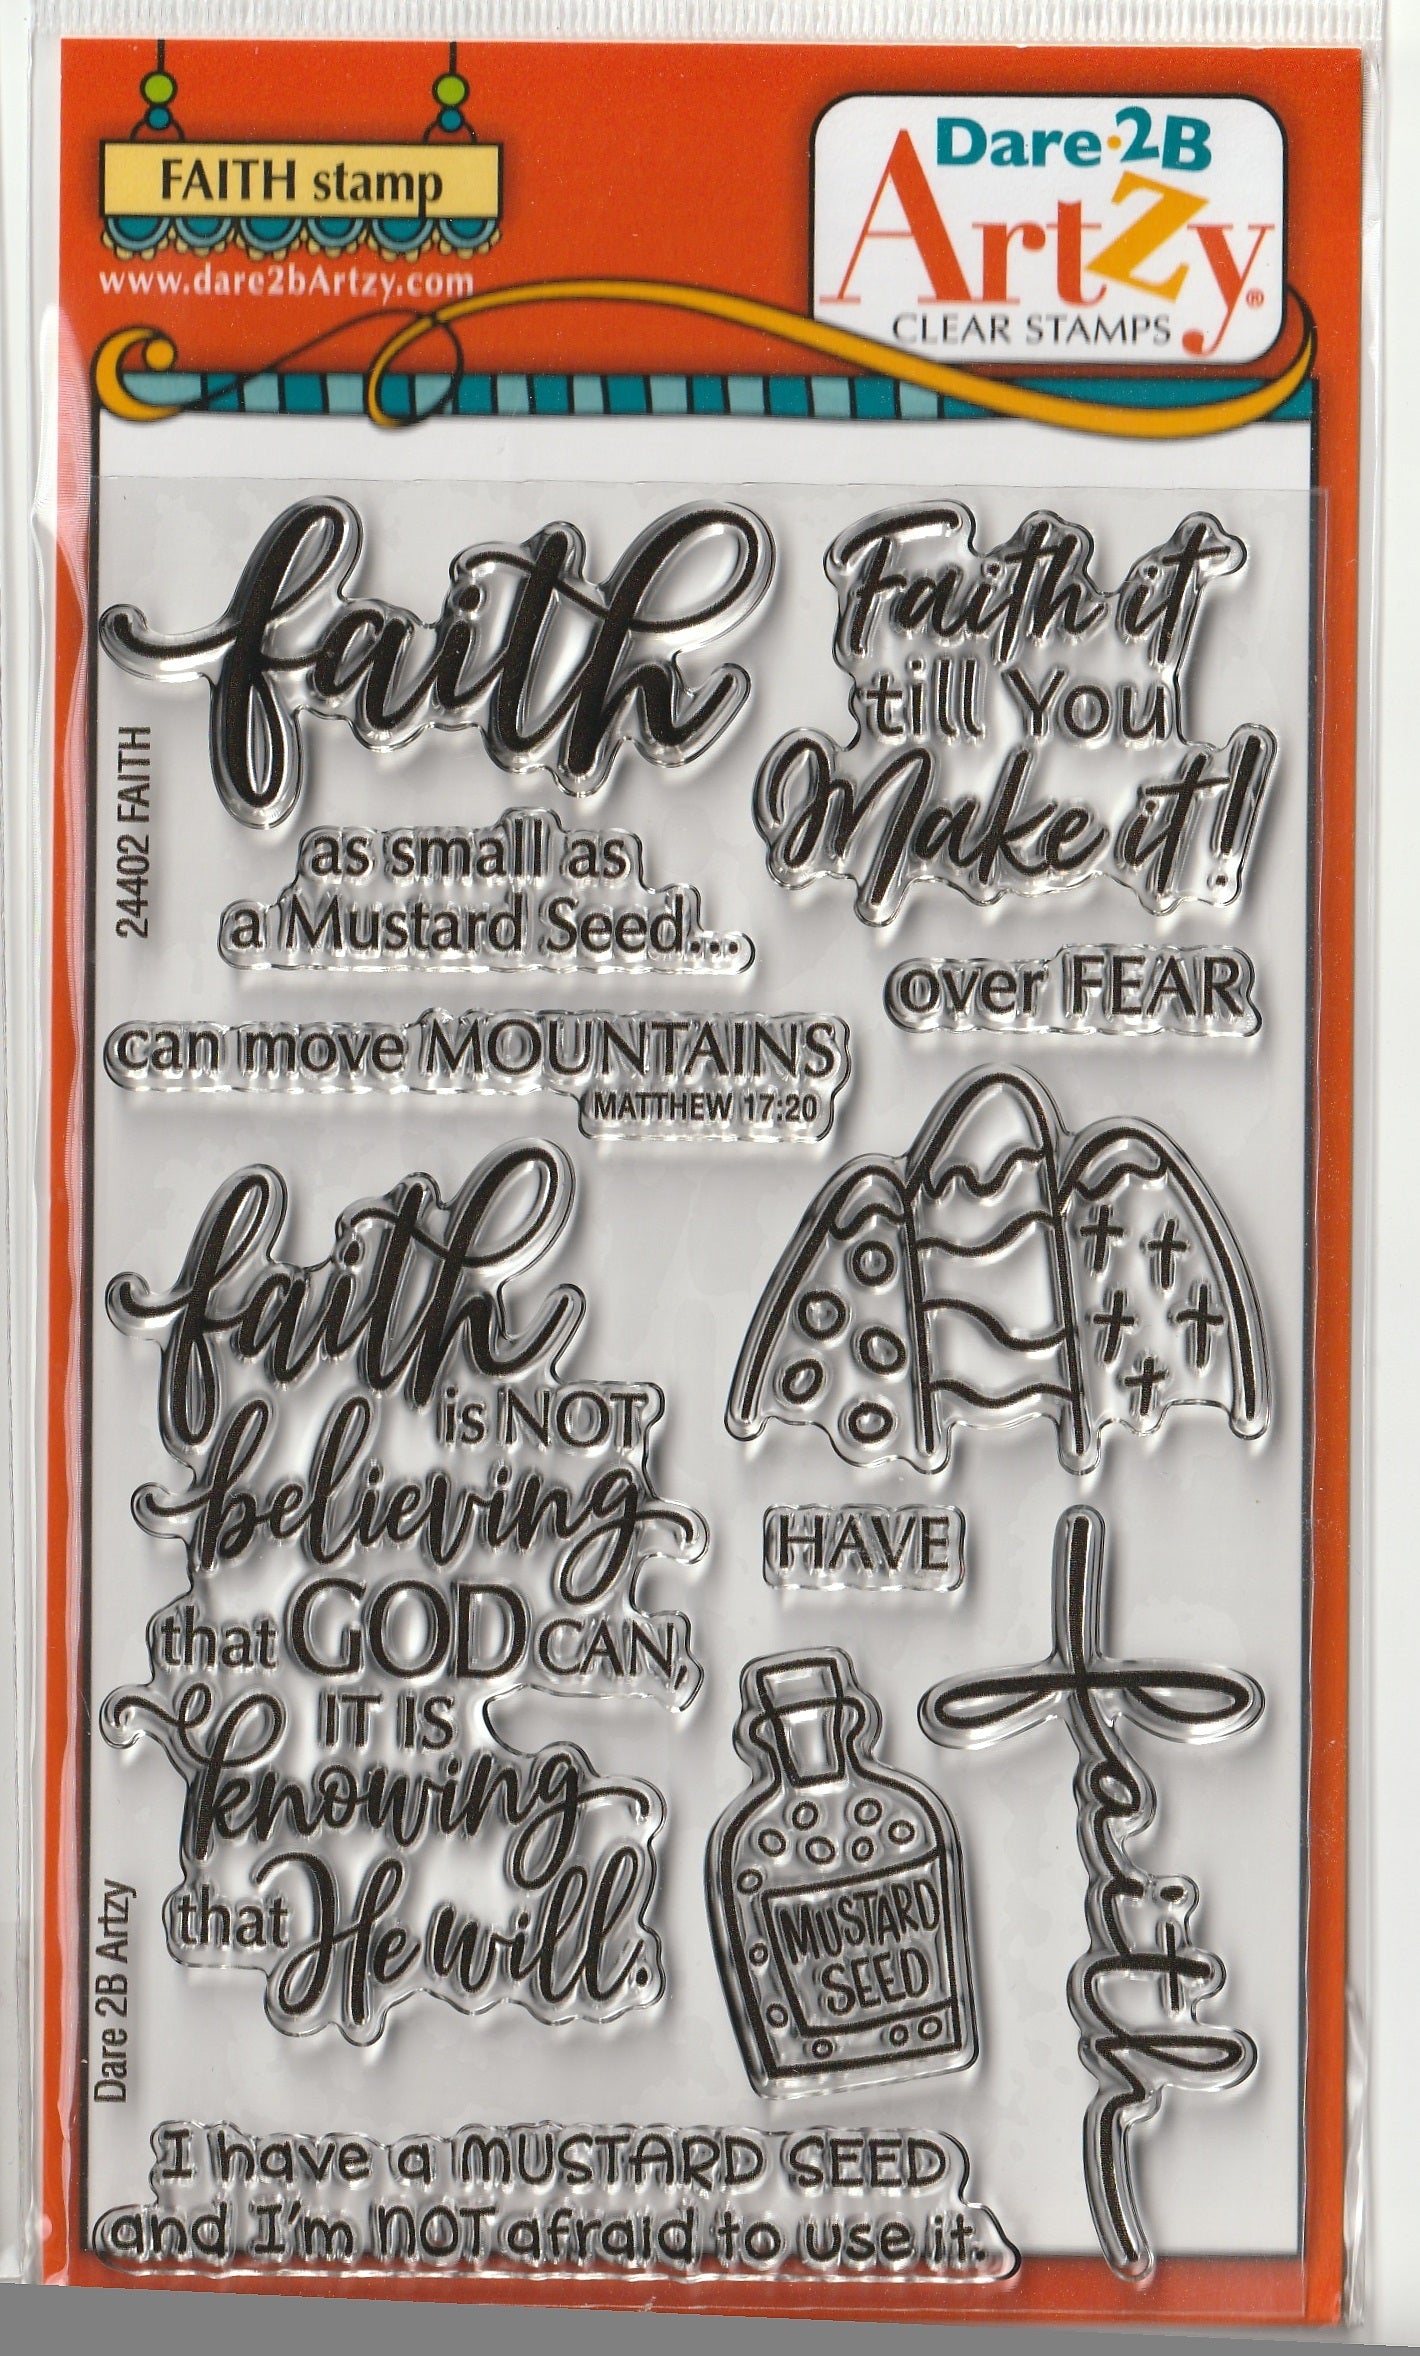 FAITH stamp
www.dare2bArtzy.com
Dare·2B
ArtZy®
CLEAR STAMPS
faith
as small as
a Mustard Seed...
can move MOUNTAINS
MATTHEW 17:20
Faith it
till You
Make it!
over FEAR
24402 FAITH
faith
is NOT
believing
that GOD CAN,
IT IS
knowing
that He will.
HAVE
MUSTARD
SEED
faith
Dare 2B Artzy
I have a MUSTARD SEED
and I'm NOT afraid to use it.